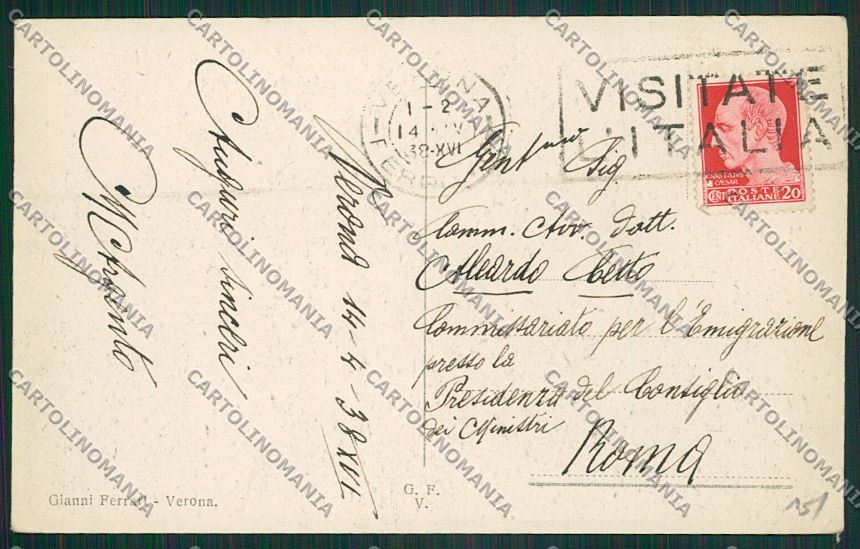 Auguri sinceri
Verona 14-4-38 XVI
VERONA
1-2
14
38-XVI
FERR
VISITATE
L'ITALIA
CAESAR
CENT POSTE ITALIANE 20
Gent.mo Sig.
Comm. Avv. Dott.
Aleardo Cetto
Commissariato per l'Emigrazione
presso la
Presidenza del Consiglio
dei Ministri
Roma
Gianni Ferrari - Verona.
G. F.
V.
CARTOLINOMANIA